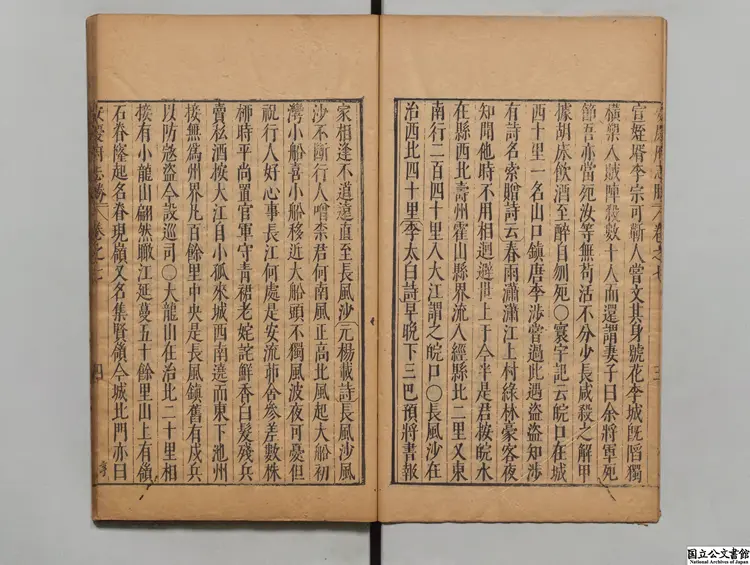 安慶府志勝 卷之七 三
宣姪壻李宗可靳人嘗文其身號花李城旣陷獨
橫槊入賊陣殺數十人而還謂妻子曰余將軍死
節吾亦當死汝等無苟活不分少長咸殺之解甲
據胡床飲酒至醉自刎死〇寰宇記云皖口在城
西十里一名山口鎮唐李涉嘗過此遇盜盜知涉
有詩名索贈詩云春雨瀟瀟江上村綠林豪客夜
知聞他時不用相迴避世上于今半是君按皖水
在縣西北壽州霍山縣界流入經縣北二里又東
南行二百四十里入大江謂之皖口〇長風沙在
治西北四十里李太白詩早晚下三巴預將書報
家相逢不道遠直至長風沙元楊載詩長風沙風
沙不斷行人噌柰君何南風正高北風起大船初
灣小船喜小船移近大船頭不獨風波夜可憂但
祝行人好心事長江何處是安流茆舍參差數株
柳時平尚置官軍守青裙老姥詫鮮香白髮殘兵
賣私酒按大江自小孤來城西南遶而東下池州
接無爲州界凡百餘里中央是長風鎮舊有戍兵
以防寇盜今設巡司〇大龍山在治北二十里相
接有小龍山翩然瞰江延蔓五十餘里山上有嶺
石脊隆起名脊現嶺又名集賢嶺今城北門亦曰
安慶府志勝 卷之七 四
国立公文書館
National Archives of Japan